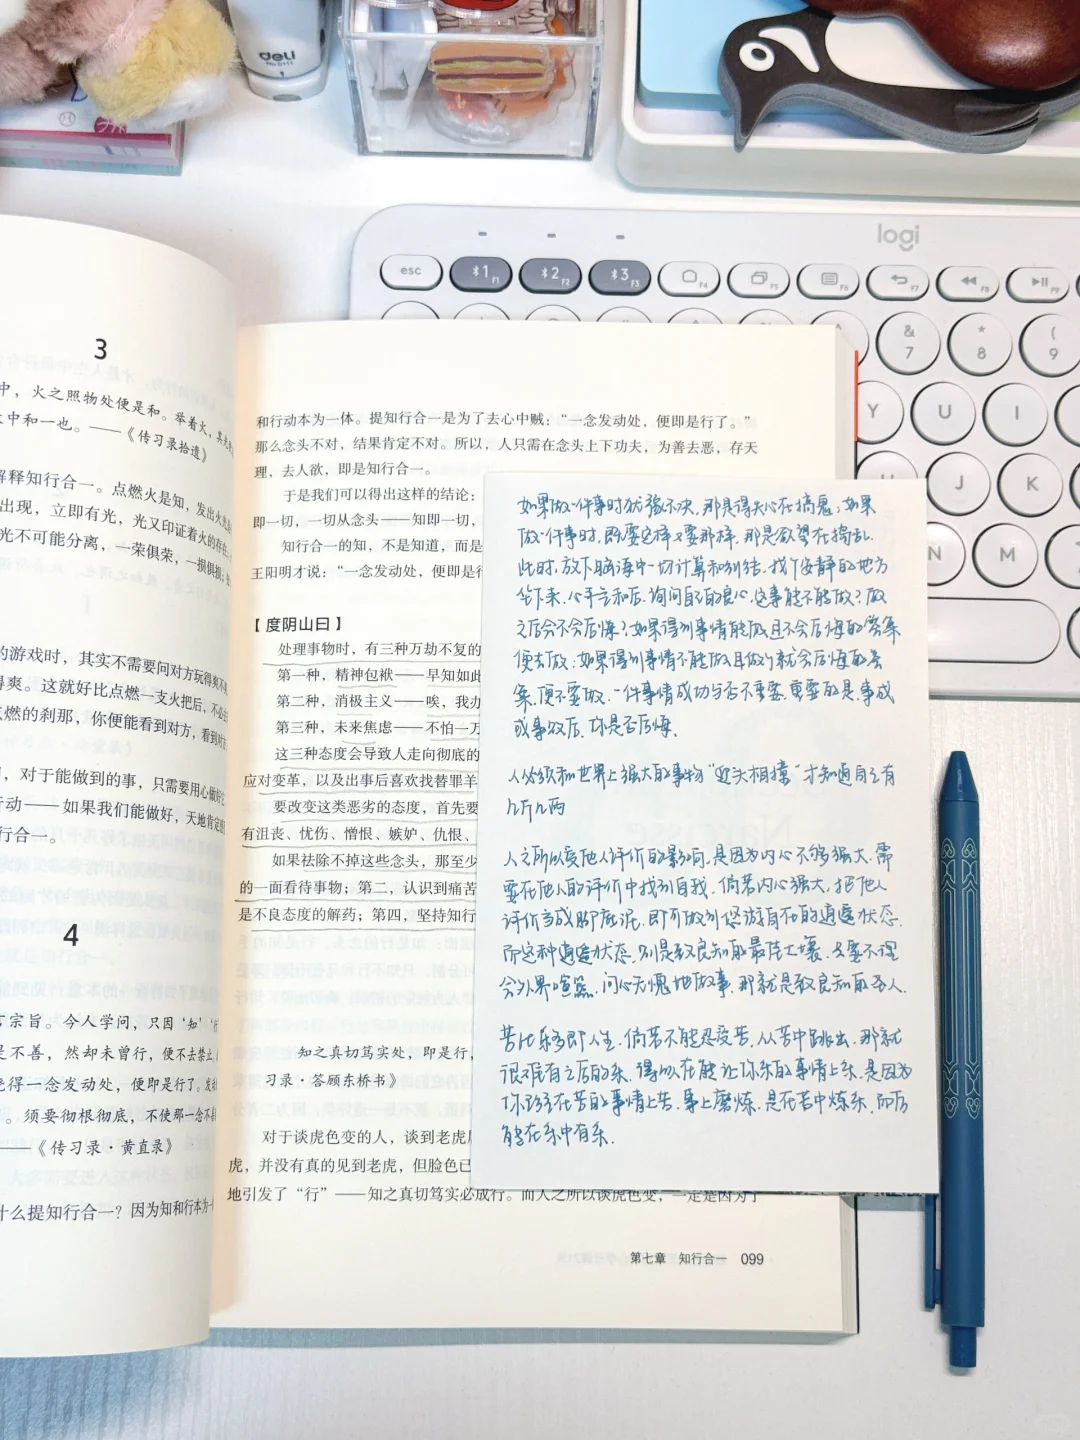 deli
No.0111
logi
esc
1 F1
2 F2
3 F3
F4
F5
F6
F7
F8
F9
&
7
*
8
(
9
Y
U
I
J
K
N
M
3
中,火之照物处便是和。举着火,其光
中和一也。——《传习录拾遗》
解释知行合一。点燃火是知,发出火光
出现,立即有光,光又印证着火的存在
光不可能分离,一荣俱荣,一损俱损
的游戏时,其实不需要问对方玩得爽不
得爽。这就好比点燃一支火把后,不必
点燃的刹那,你便能看到对方,看到
,对于能做到的事,只需要用心做好
行动——如果我们能做好,天地肯定
行合一。
4
宗旨。今人学问,只因‘知’‘行
是不善,然却未曾行,便不去禁止
晓得一念发动处,便即是行了。发动
。须要彻根彻底,不使那一念不
——《传习录·黄直录》
什么提知行合一?因为知和行本为一
和行动本为一体。提知行合一是为了去心中贼:“一念发动处,便即是行了。”
那么念头不对,结果肯定不对。所以,人只需在念头上下功夫,为善去恶,存天
理,去人欲,即是知行合一。
于是我们可以得出这样的结论:
即一切,一切从念头——知即一切,
知行合一的知,不是知道,而是
王阳明才说:“一念发动处,便即是行
【度阴山曰】
处理事物时,有三种万劫不复的
第一种,精神包袱——早知如此
第二种,消极主义——唉,我办
第三种,未来焦虑——不怕一万
这三种态度会导致人走向彻底的
应对变革,以及出事后喜欢找替罪羊
要改变这类恶劣的态度,首先要
有沮丧、忧伤、憎恨、嫉妒、仇恨、
如果祛除不掉这些念头,那至少
的一面看待事物;第二,认识到痛苦
是不良态度的解药;第四,坚持知行
知之真切笃实处,即是行,
习录·答顾东桥书》
对于谈虎色变的人,谈到老虎
虎,并没有真的见到老虎,但脸色已
地引发了“行”——知之真切笃实必成行。而人之所以谈虎色变,一定是因为了
第七章 知行合一 099
如果做一件事时犹豫不决,那是得失心在搞鬼;如果
做一件事时,既要这样又要那样,那是欲望在捣乱。
此时,放下脑海中一切计算和纠结,找个安静的地方
坐下来,心平气和后,询问自己的良心,这事能不能做?做
之后会不会后悔?如果得到事情能做且不会后悔的答案
便去做;如果得到事情不能做且做了就会后悔的答
案,便不要做。一件事情成功与否不重要,重要的是,事成
或事败后,你是否后悔。
人必须和世界上强大的事物“迎头相撞”才知道自己有
几斤几两
人之所以受他人评价的影响,是因为内心不够强大,需
要在他人的评价中找到自我。倘若内心强大,把他人
评价当成脚底泥,即可做到悠游自在的逍遥状态。
而这种逍遥状态,则是致良知的最佳土壤。只要不理
会外界喧嚣,问心无愧地做事,那就是致良知的圣人。
苦比乐多即人生。倘若不能忍受苦,从苦中跳出,那就
很难有之后的乐。得以在能让你乐的事情上乐,是因为
你珍在苦的事情上苦。事上磨炼,是在苦中炼乐,而后
能在乐中有乐。